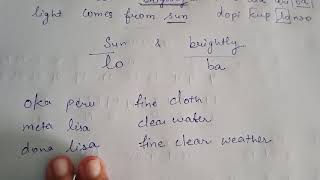 light comes from sun dopi kup lo nro
Sun & brightly
lo ba
oka peru fine cloth
meta lisa clear water
dona lisa fine clear weather